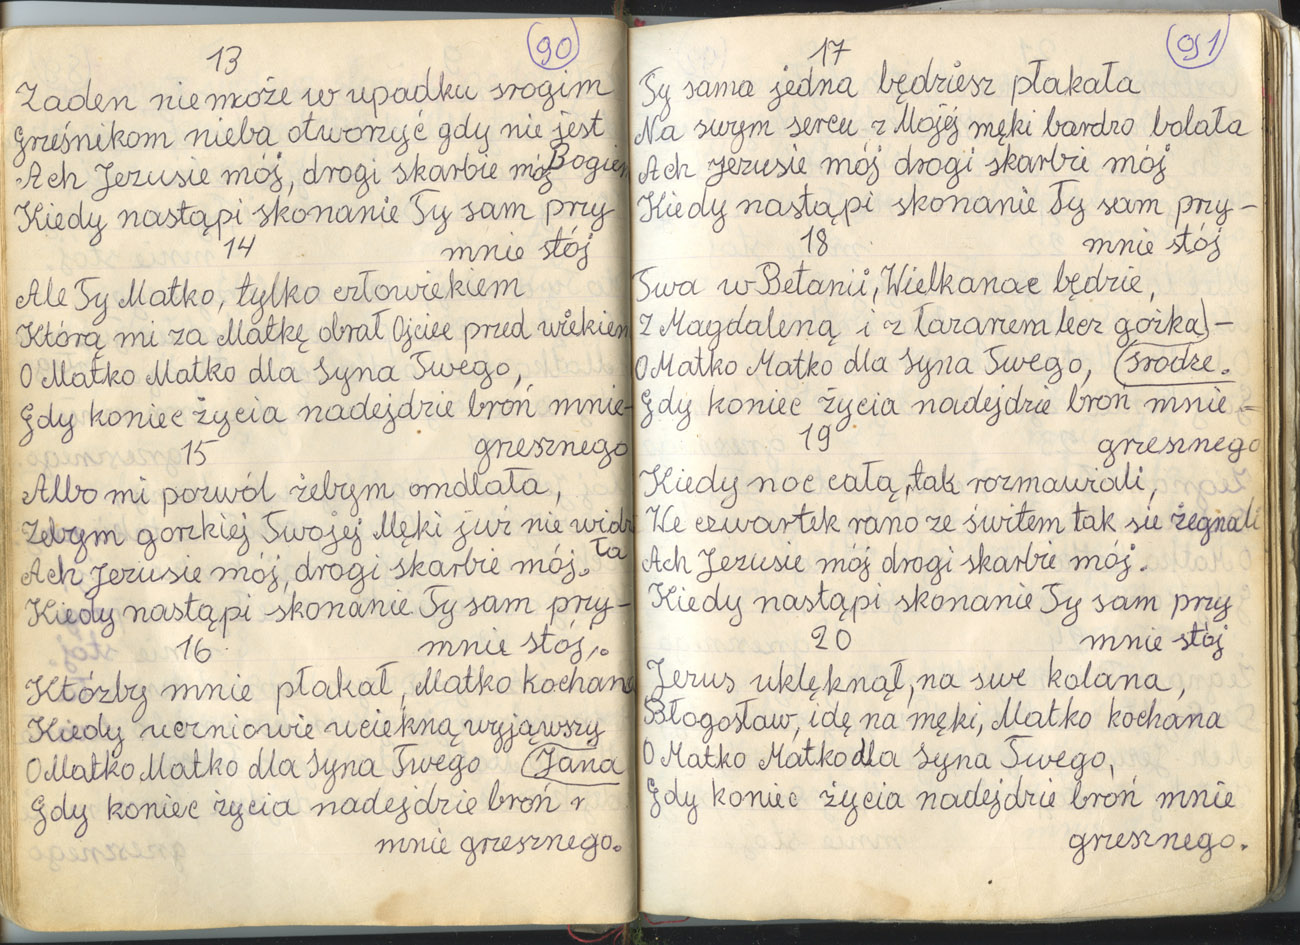 90
13
Żaden nie może w upadku srogim
Grześnikom nieba otworzyć gdy nie jest
Bogiem
Ach Jezusie mój, drogi skarbie mój
Kiedy nastąpi skonanie Ty sam przy
mnie stój
14
Ale Ty Matko, tylko człowiekiem
Którą mi za Matkę obrał Ojciec przed wiekiem
O Matko Matko dla Syna Twego,
Gdy koniec życia nadejdzie broń mnie-
grzesznego
15
Albo mi pozwól żebym omdlała,
Żebym gorzkiej Twojej Męki już nie widzi
ła
Ach Jezusie mój, drogi skarbie mój.
Kiedy nastąpi skonanie Ty sam przy-
mnie stój.
16
Którzby mnie płakał, Matko kochana
Kiedy uczniowie uciekną wyjąwszy
Jana
O Matko Matko dla Syna Twego
Gdy koniec życia nadejdzie broń
mnie grzesznego.
91
17
Ty sama jedna będziesz płakała
Na swym sercu z Mojéj męki bardzo bolała
Ach Jezusie mój drogi skarbie mój
Kiedy nastąpi skonanie Ty sam przy-
mnie stój
18
Twa w Betanii, Wielkanac będzie,
Z Magdaleną i z Łazarzem lecz gorzka-
srodze.
O Matko Matko dla Syna Twego,
Gdy koniec życia nadejdzie broń mnie-
grzesznego
19
Kiedy noc całą, tak rozmawiali,
We czwartek rano ze świtem tak sie żegnali
Ach Jezusie mój drogi skarbie mój.
Kiedy nastąpi skonanie Ty sam przy
mnie stój
20
Jezus uklęknął, na swe kolana,
Błogosław, idę na męki, Matko kochana
O Matko Matko dla Syna Twego,
Gdy koniec życia nadejdzie broń mnie
grzesznego.